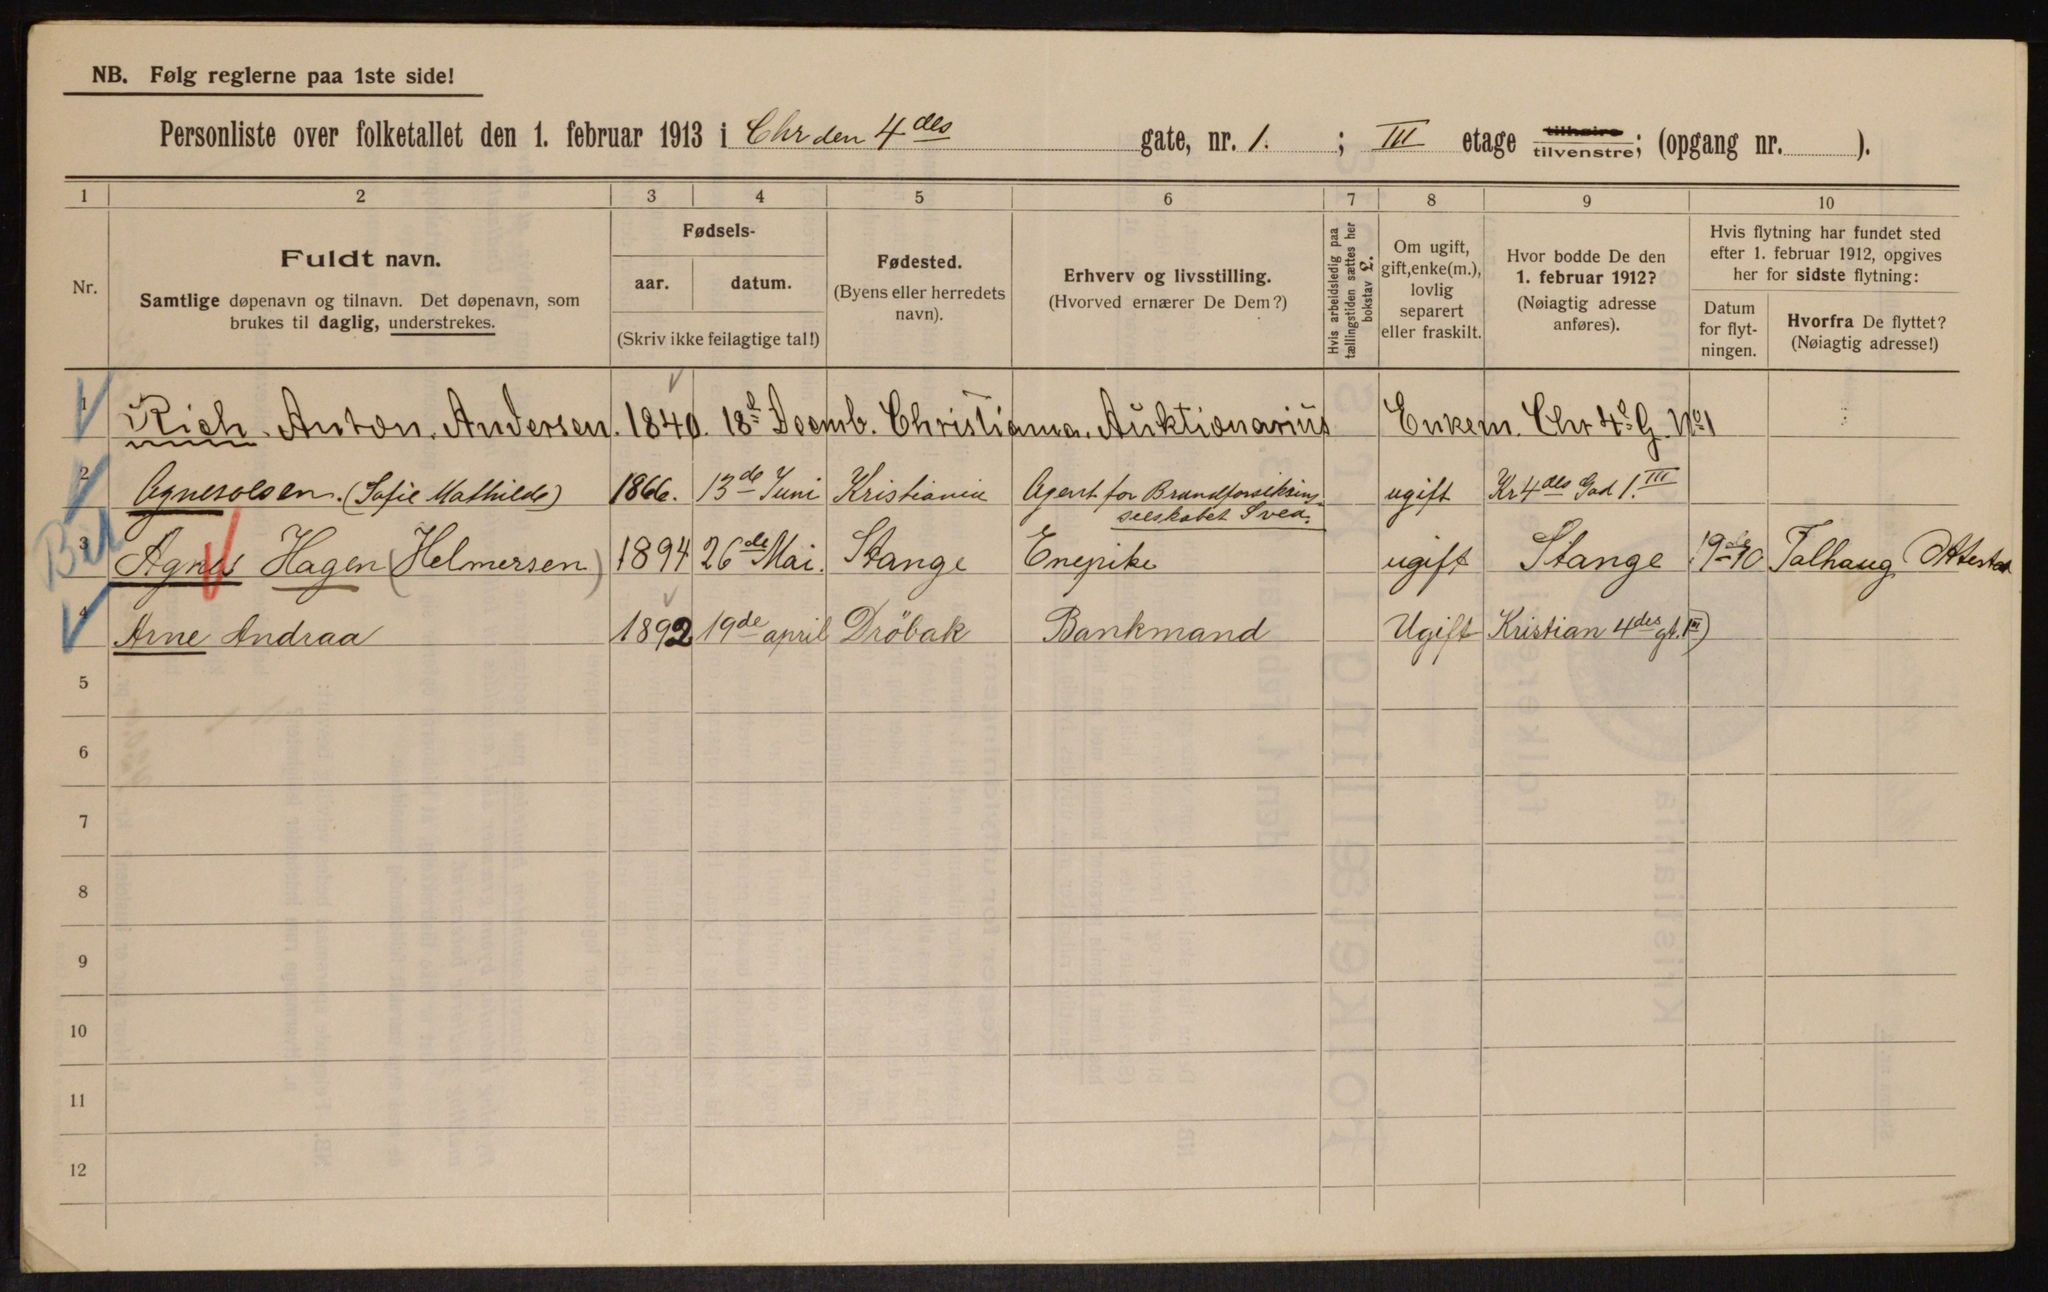 NB. Følg reglerne paa 1ste side!
Personliste over folketallet den 1. februar 1913 i Chr den 4des gate, nr. 1. ; III etage tilhøire tilvenstre; (opgang nr. ).
1 2 3 4 5 6 7 8 9 10
Nr.
Fuldt navn.
Samtlige døpenavn og tilnavn. Det døpenavn, som
brukes til daglig, understrekes.
Fødsels-
aar. datum.
(Skriv ikke feilagtige tal!)
Fødested.
(Byens eller herredets
navn).
Erhverv og livsstilling.
(Hvorved ernærer De Dem?)
Hvis arbeidsledig paa
tællingstiden sættes her
bokstav £.
Om ugift,
gift, enke(m.),
lovlig
separert
eller fraskilt.
Hvor bodde De den
1. februar 1912?
(Nøiagtig adresse
anføres).
Hvis flytning har fundet sted
efter 1. februar 1912, opgives
her for sidste flytning:
Datum
for flyt-
ningen.
Hvorfra De flyttet?
(Nøiagtig adresse!)
1 Rich. Anton. Andersen. 1840. 18d Decmb. Christiania. Auktionarius Enkem. Chr 4d G. No 1
2 Agnesolsen. (Sofie Mathilde) 1866. 13de Juni Kristiania Agent for Brandforsikrins ugift Kr 4des Gad 1. III
selskabet Svea.
3 Agnes Hagen (Helmersen) 1894 26de Mai. Stange Enepike ugift Stange 19de 10 Talhaug
Bet
4 Arne Andraa 1892 19de april Dröbak Bankmand Ugift Kristian 4des gt. 1III)
5
6
7
8
9
10
11
12